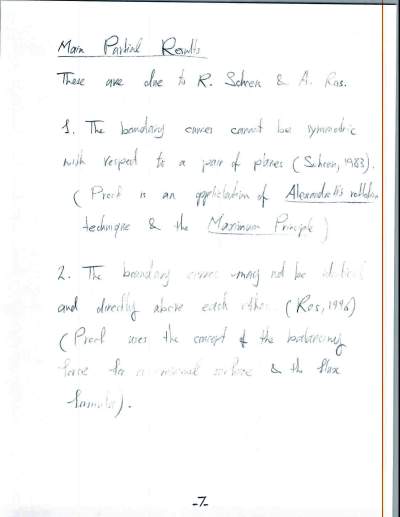 Main Partial Results
These are due to R. Schoen & A. Ros.
1. The boundary curves cannot be symmetric
with respect to a pair of planes (Schoen, 1983).
(Proof is an application of Alexandroff's reflection
technique & the Maximum Principle)
2. The boundary curves may not be
and directly above each other. (Ros, 1996)
(Proof uses the concept of the balancing
force for a minimal surface & the flux
formula).
-7-